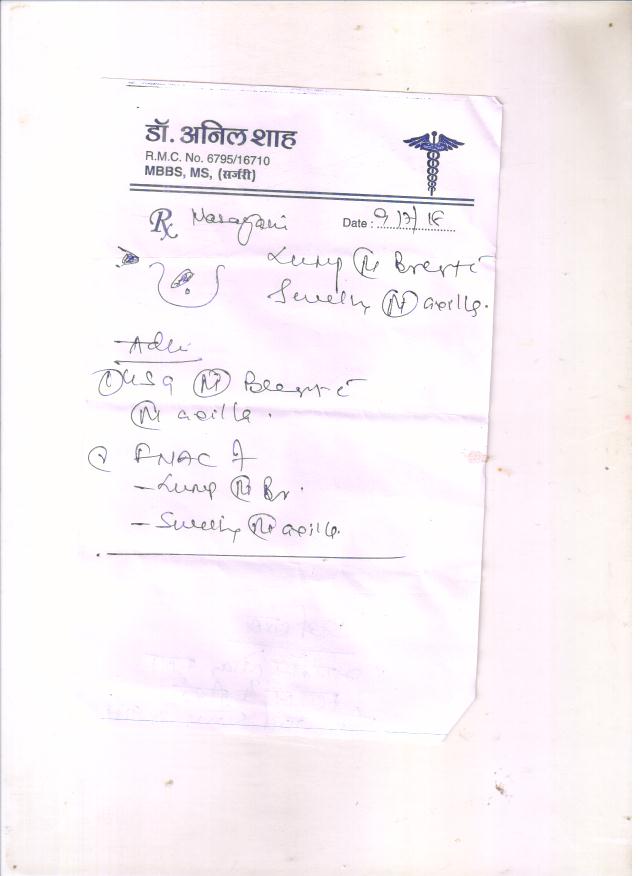 डॉ. अनिल शाह
R.M.C. No. 6795/16710
MBBS, MS, (सर्जरी)
Rx Narayani Date : 9/7/18
Lump Rt Breast c
Swelling Rt axilla.
Adv
① USG Rt Breast c
Rt axilla.
② FNAC of
- Lump Rt Br.
- Swelling Rt axilla.